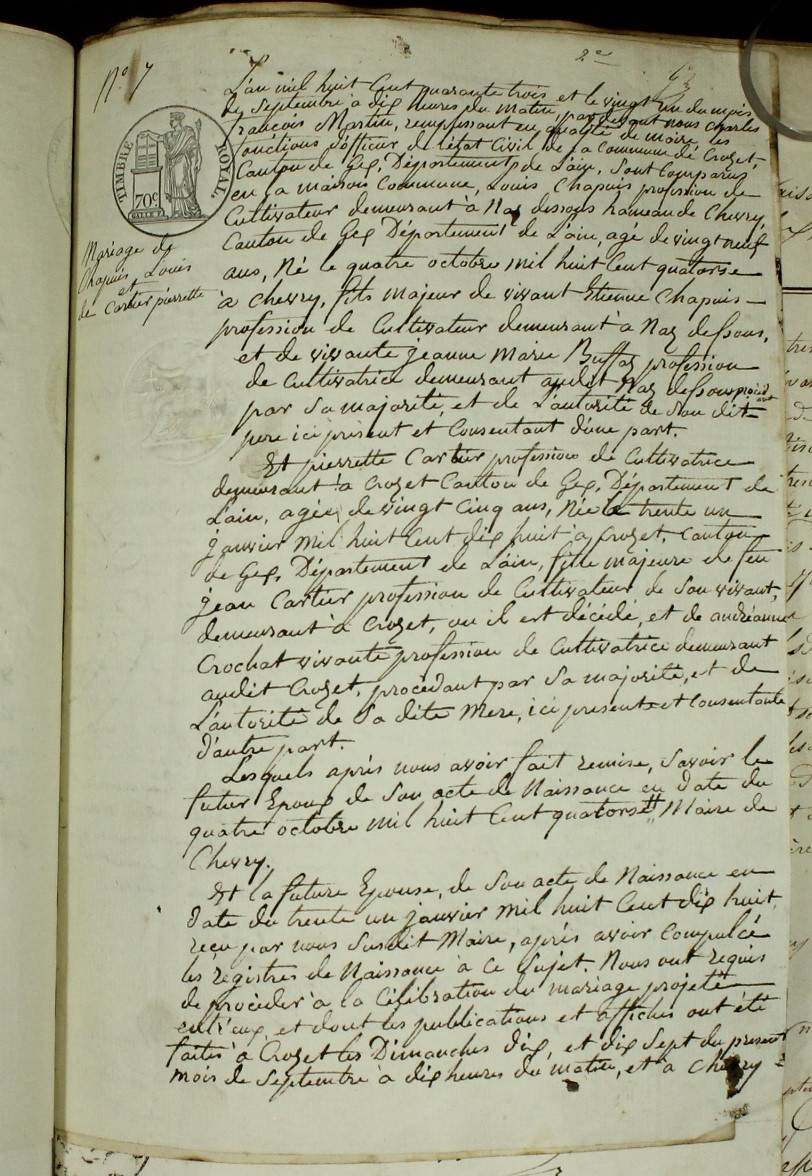 N° 7
TIMBRE ROYAL
70c
Mariage de
Chapuis Louis
et
de Cartier pierrette
L'an mil huit Cent quarante trois et le vingt un du mois
de Septembre à dix heures du matin, par devant nous charles
françois Martin, remplissant en qualité de maire, les
fonctions d'officier de l'état Civil de la Commune de Crozet,
Canton de Gex, Département de l'ain, Sont Comparus
en la maison Commune, Louis Chapuis profession de
Cultivateur demeurant à Naz dessous hameau de Chevry,
Canton de Gex Département de L'ain, agé de vingt neuf
ans, Né le quatre octobre mil huit Cent quatorse
à Chevry, fils majeur de vivant Etienne Chapuis
profession de Cultivateur demeurant à Naz dessous,
et de vivante jeanne Marie Buffaz profession
de Cultivatrice demeurant audit Naz dessous procédant
par Sa majorité, et de L'autorité de Son dit
pere ici présent et Consentant d'une part.
Et pierrette Cartier profession de Cultivatrice
demeurant à Crozet Canton de Gex, Département de
L'ain, agée de vingt Cinq ans, Née le trente un
janvier mil huit Cent dix huit à Crozet, Canton
de Gex, Département de L'ain, fille majeure de feu
jean Cartier profession de Cultivateur de Son vivant,
demeurant à Crozet, ou il est décédé, et de andréanne
Crochat vivante profession de Cultivatrice demeurant
audit Crozet, procédant par Sa majorité, et de
L'autorité de Sa dite Mere, ici presente et Consentante
d'autre part.
Lesquels après nous avoir fait remise, Savoir le
futur Epoux de Son acte de Naissance en date du
quatre octobre mil huit Cent quatorse Maire de
Chevry.
Et la future Epouse, de Son acte de Naissance en
date du trente un janvier mil huit Cent dix huit,
reçu par nous Susdit Maire, après avoir Compulcé
les registres de Naissance à ce Sujet. Nous ont requis
de procéder à la Célébration du mariage projeté
entr'eux, et dont les publications et affiches ont été
faites à Crozet les Dimanches dix, et dix Sept du present
mois de Septembre à dix heures du matin, et à Chevry